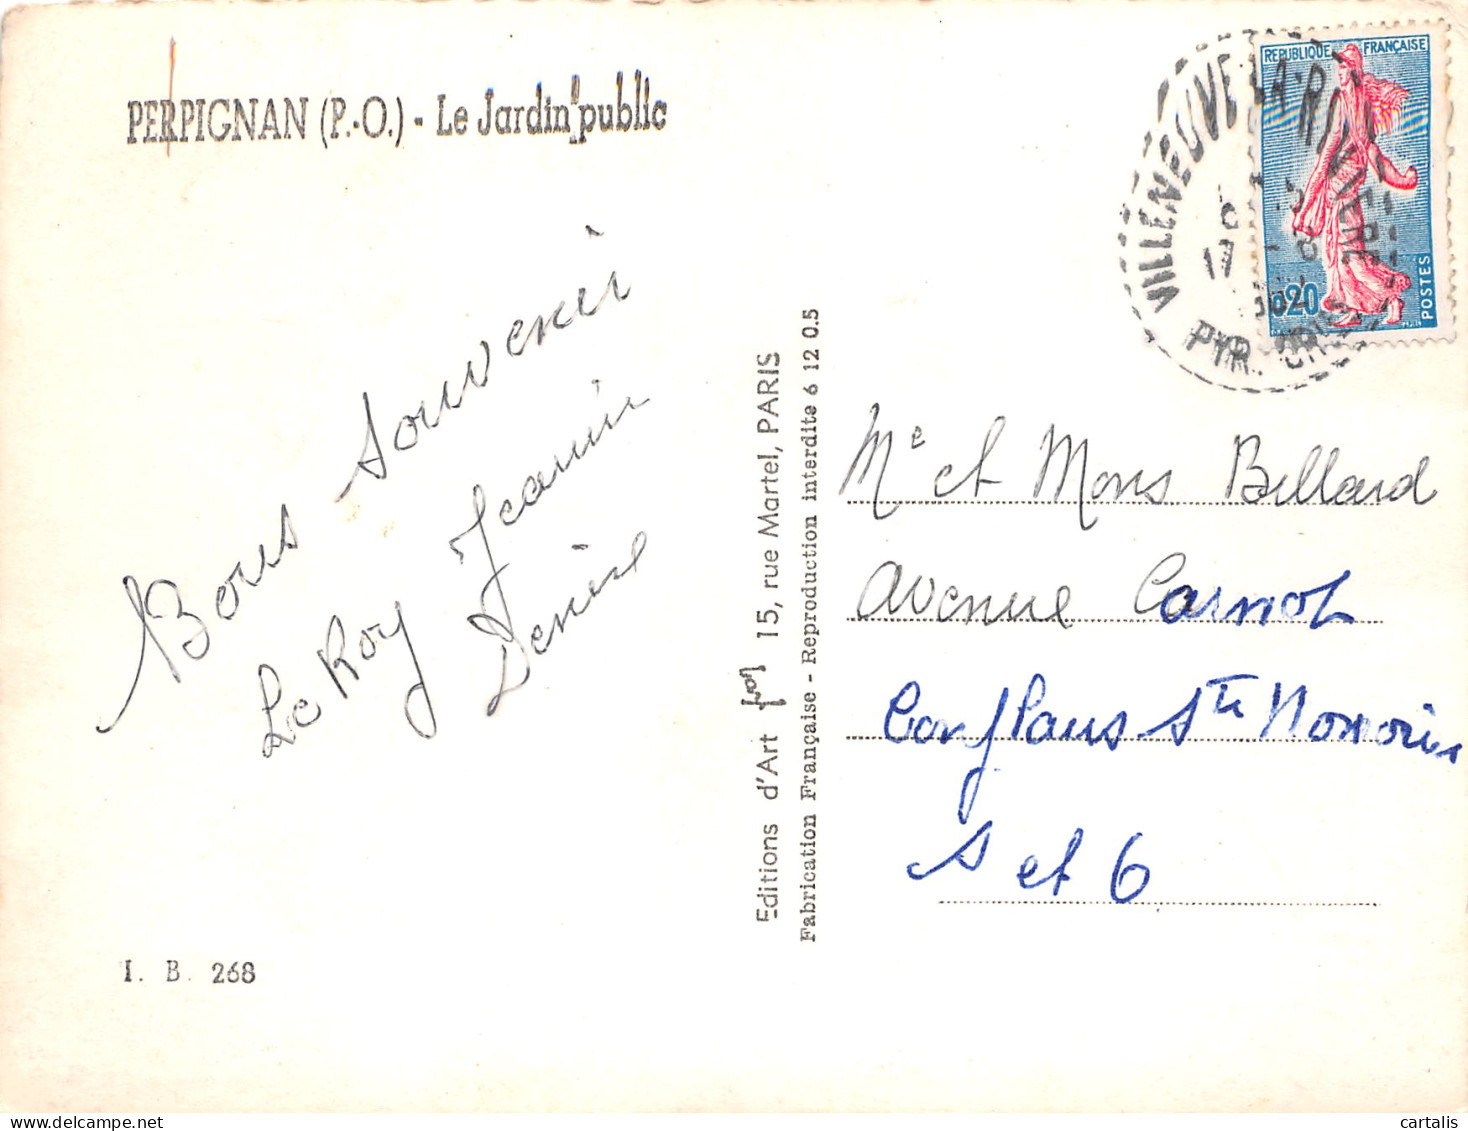 PERPIGNAN (P.-O.) - Le Jardin public
Bons Souvenir
Le Roy Jeannin
Denise
I. B. 268
Editions d'Art 15, rue Martel, PARIS
Fabrication Française - Reproduction interdite 6 12 0.5
REPUBLIQUE FRANÇAISE
0,20
POSTES
VILLENEUVE-LA-RIVIERE
17 - 8
PYR. ORles
Me et Mons Billard
avenue Carnot
Conflans Ste Honorine
S et 6
cartalis
www.delcampe.net